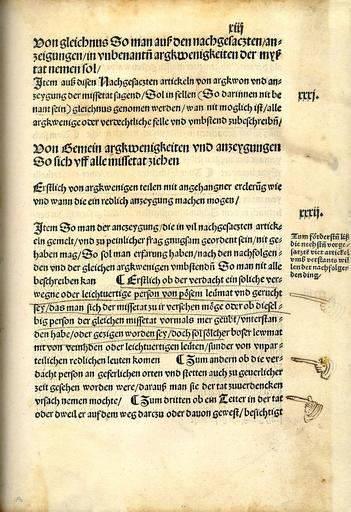 xiij
Von gleichnus So man auß den nachgesaczten/an⸗
zeigungen/in vnbenantñ argkwenigkeiten der myß
tat nemen sol/
Jtem auß disen Nachgesaczten artickeln von argkwon vnd an⸗
zeygung der missetat sagend/Sol in fellen (So darinnen nit be
nant sein) gleichnus genomen werden/wan nit moglich ist/alle
argkwenige oder verdechtliche felle vnd vmbstend zubeschreibñ/
xxxj.
Von Gemein argkwenigkeiten vnd anzeygungen
So sich vff alle missetat ziehen
Erstlich von argkwenigen teilen mit angehangner erclerūg wie
vnd wann die ein redlich anzeygung machen mogen/
xxxij.
Jtem So man der anczeygung/die in vil nachgesaczten artick⸗
eln gemelt/vnd zu peinlicher frag gnugsam geordent sein/nit ge⸗
haben mag/So sol man erfarung haben/nach den nachfolgen⸗
den vnd der gleichen argkwenigen vmbstendñ So man nit alle
beschreiben kan ☾ Erstlich ob der verdacht ein soliche ver⸗
wegne oder leichtuertige person von pösem leümat vnd gerucht
sey/das man sich der missetat zu ir versehen möge oder ob diesel⸗
big person der gleichen missetat vormals mer geübt/vnterstan⸗
den habe/oder gezigen worden sey/doch sol sölcher böser lewmat
nit von veindhen oder leichtuertigen leüten/sunder von vnpar⸗
teilichen redlichen leuten komen ☾ Zum andern ob die ver⸗
dacht person an geferlichen orten vnd stetten auch zu geuerlicher
zeit gesehen worden were/darauß man sie der tat zuuerdencken
vrsach nemen mochte/ ☾ Zum dritten ob ein Tetter in der tat
oder dweil er auf dem weg darzu oder dauon gewest/besichtigt
Zum förderstñ liß
die nechstñ vorge⸗
saczte vier artickel
vnd verstants wil
len der nachfolgen
den ding/